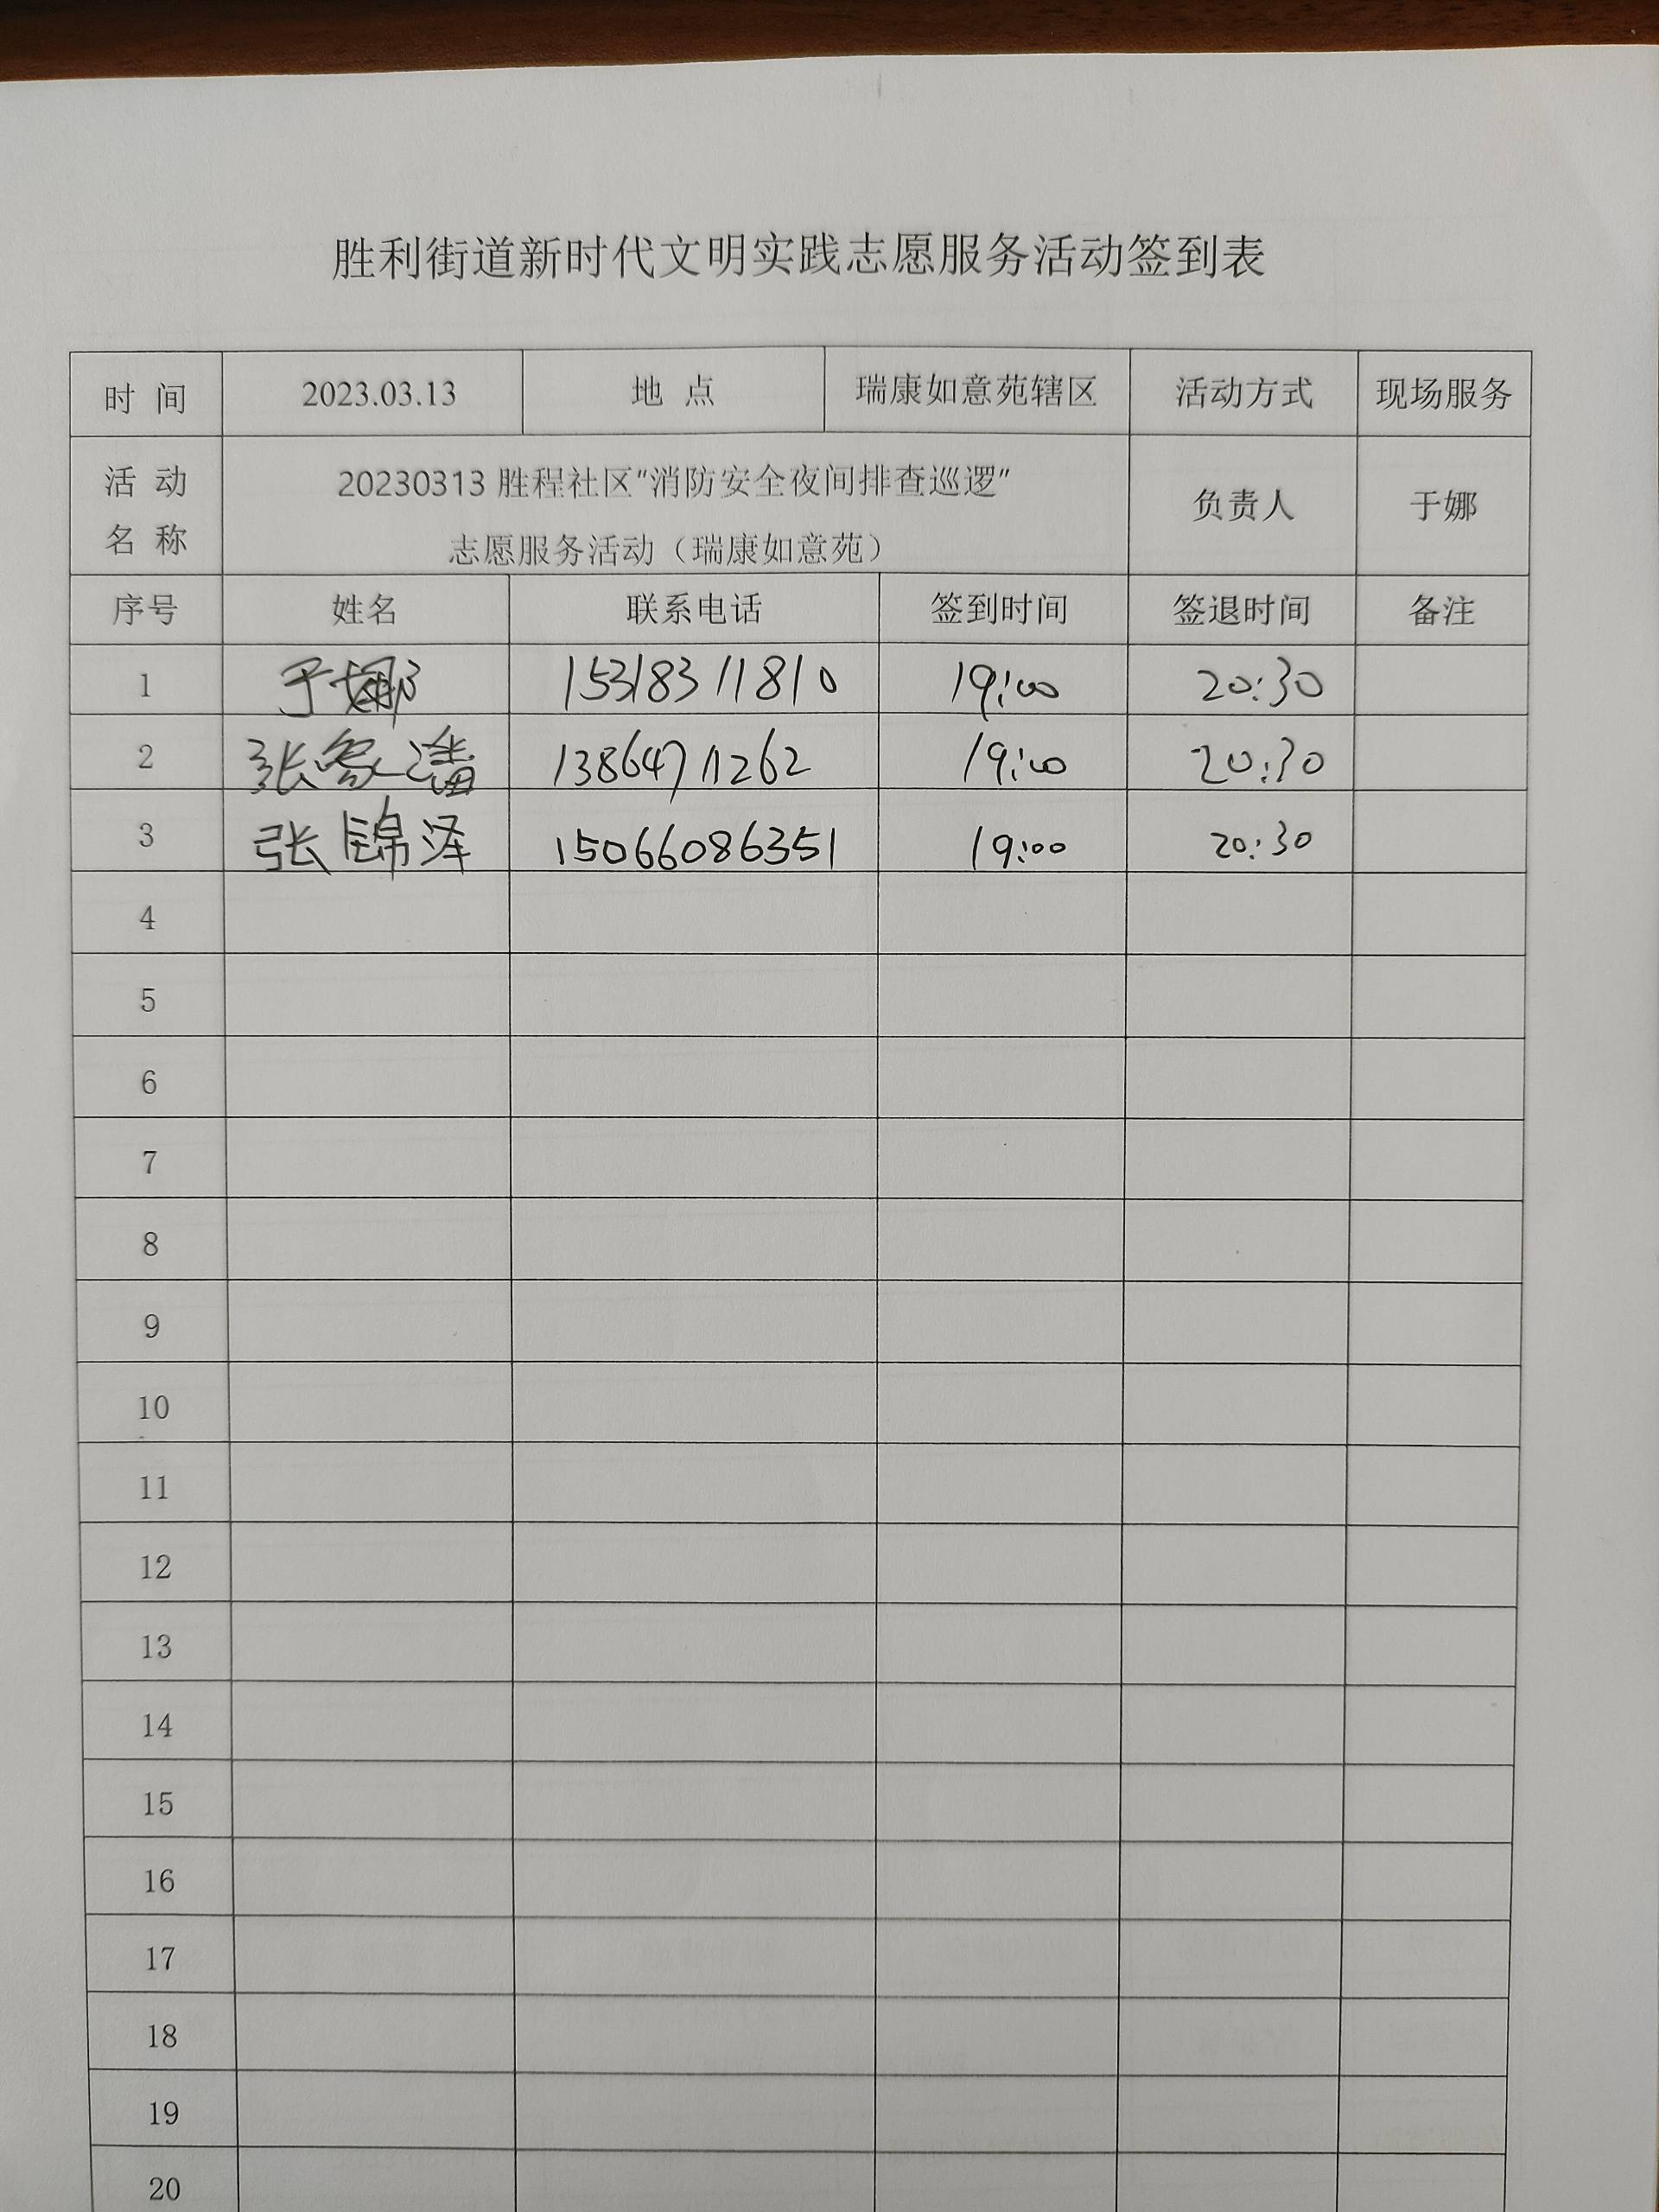 胜利街道新时代文明实践志愿服务活动签到表
时 间 2023.03.13 地 点 瑞康如意苑辖区 活动方式 现场服务
活 动 名 称 20230313 胜程社区"消防安全夜间排查巡逻" 负责人 于娜
志愿服务活动（瑞康如意苑）
序号 姓名 联系电话 签到时间 签退时间 备注
1 于娜 15318311810 19:00 20:30
2 张 潘 13864711262 19:00 20:30
3 张锦泽 15066086351 19:00 20:30
4
5
6
7
8
9
10
11
12
13
14
15
16
17
18
19
20